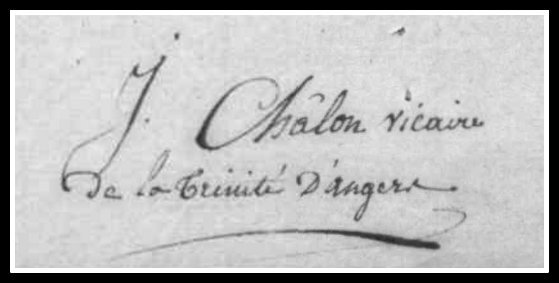 J. Châlon vicaire
de la Trinité D'angers